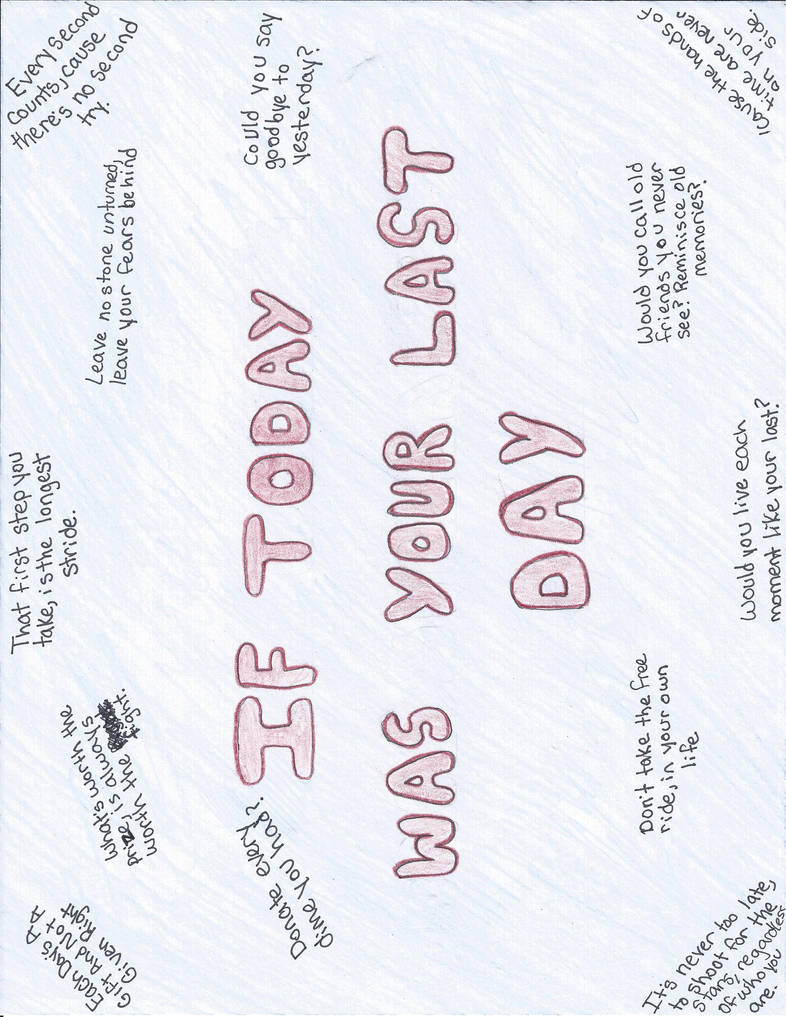 Each Day's A
Gift And Not A
Given Right
What's worth the
prize, is always
worth the fight.
That first step you
take, is the longest
stride.
Leave no stone unturned,
leave your fears behind
Every second
counts, cause
there's no second
try.
Donate every
dime you had?
Could you say
goodbye to
yesterday?
IF TODAY
WAS YOUR LAST
DAY
It's never too late,
to shoot for the
stars, regardless
of who you
are.
Don't take the free
ride, in your own
life
Would you live each
moment like your last?
Would you call old
friends you never
see? Reminisce old
memories?
'Cause the hands of
time are never
on your
side.